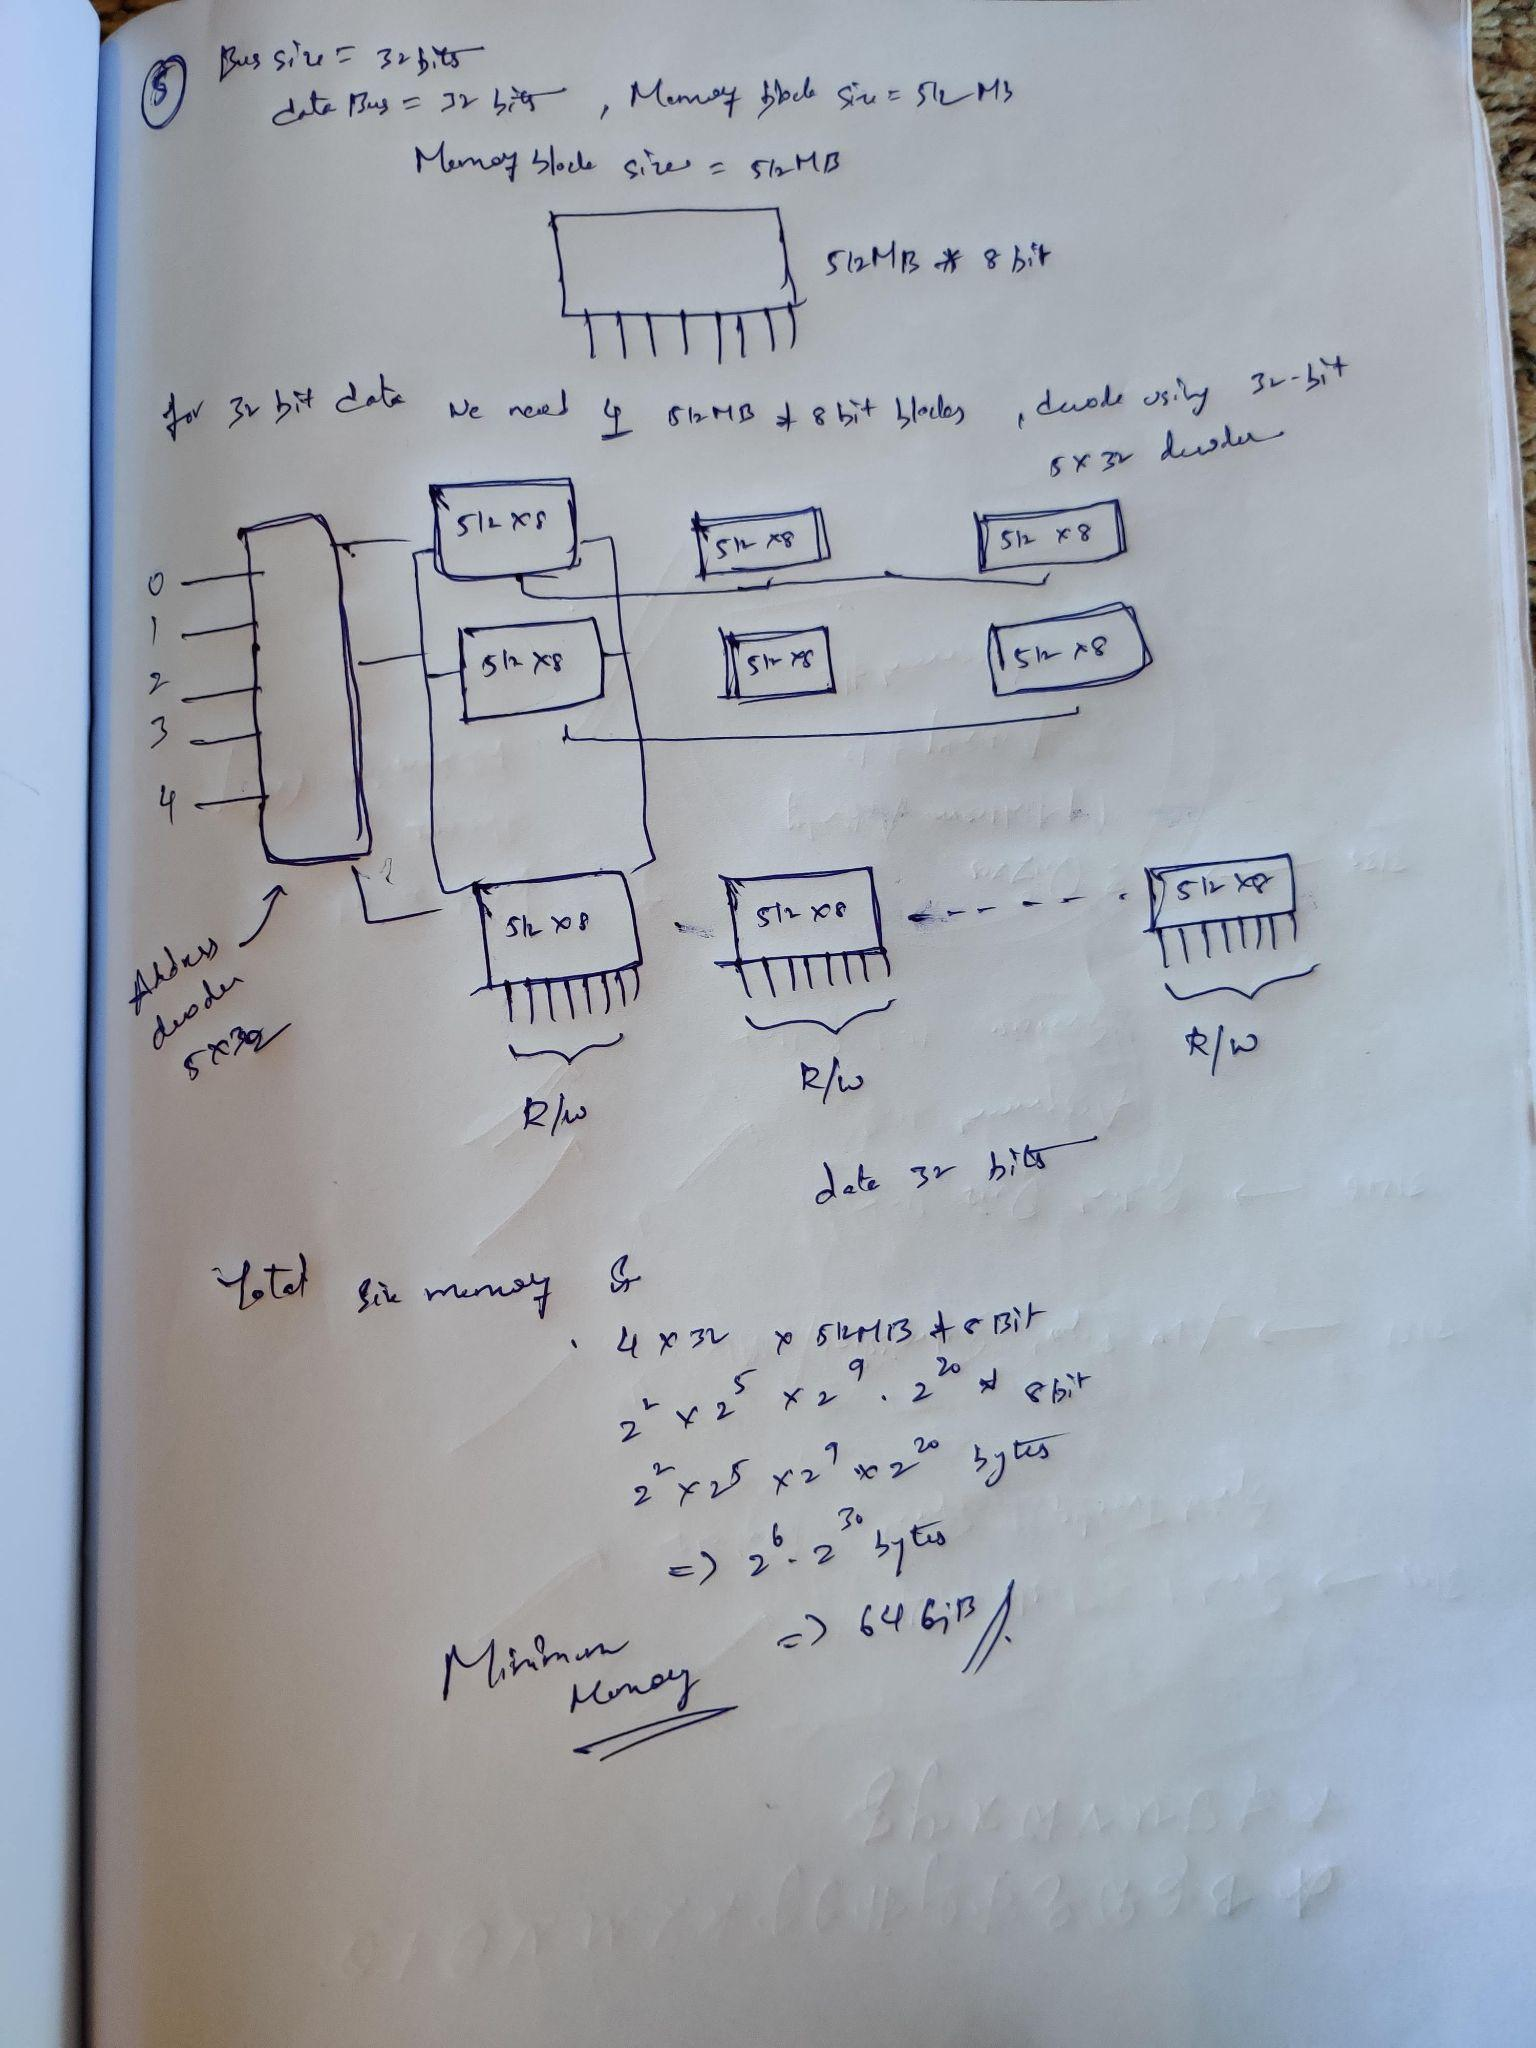 5
Bus size = 32 bits
data Bus = 32 bits , Memory block size = 512 MB
Memory block sizes = 512MB
512MB * 8 bit
for 32 bit data we need 4 512MB * 8 bit blocks , decode using 32-bit
5 x 32 decoder
512 x8 512 x8 512 x 8
0
1
2
3
4
512 x8 512 x8 512 x8
512 x8 512 x8 512 x8
Address
decoder
5x32
R/w R/w R/w
data 32 bits
Total size memory is
4 x 32 x 512MB * 8 Bit
2² x 2⁵ x 2⁹ . 2²⁰ * 8bit
2² x 2⁵ x 2⁹ x 2²⁰ bytes
=> 2⁶ . 2³⁰ bytes
=> 64 GiB
Minimum
Memory